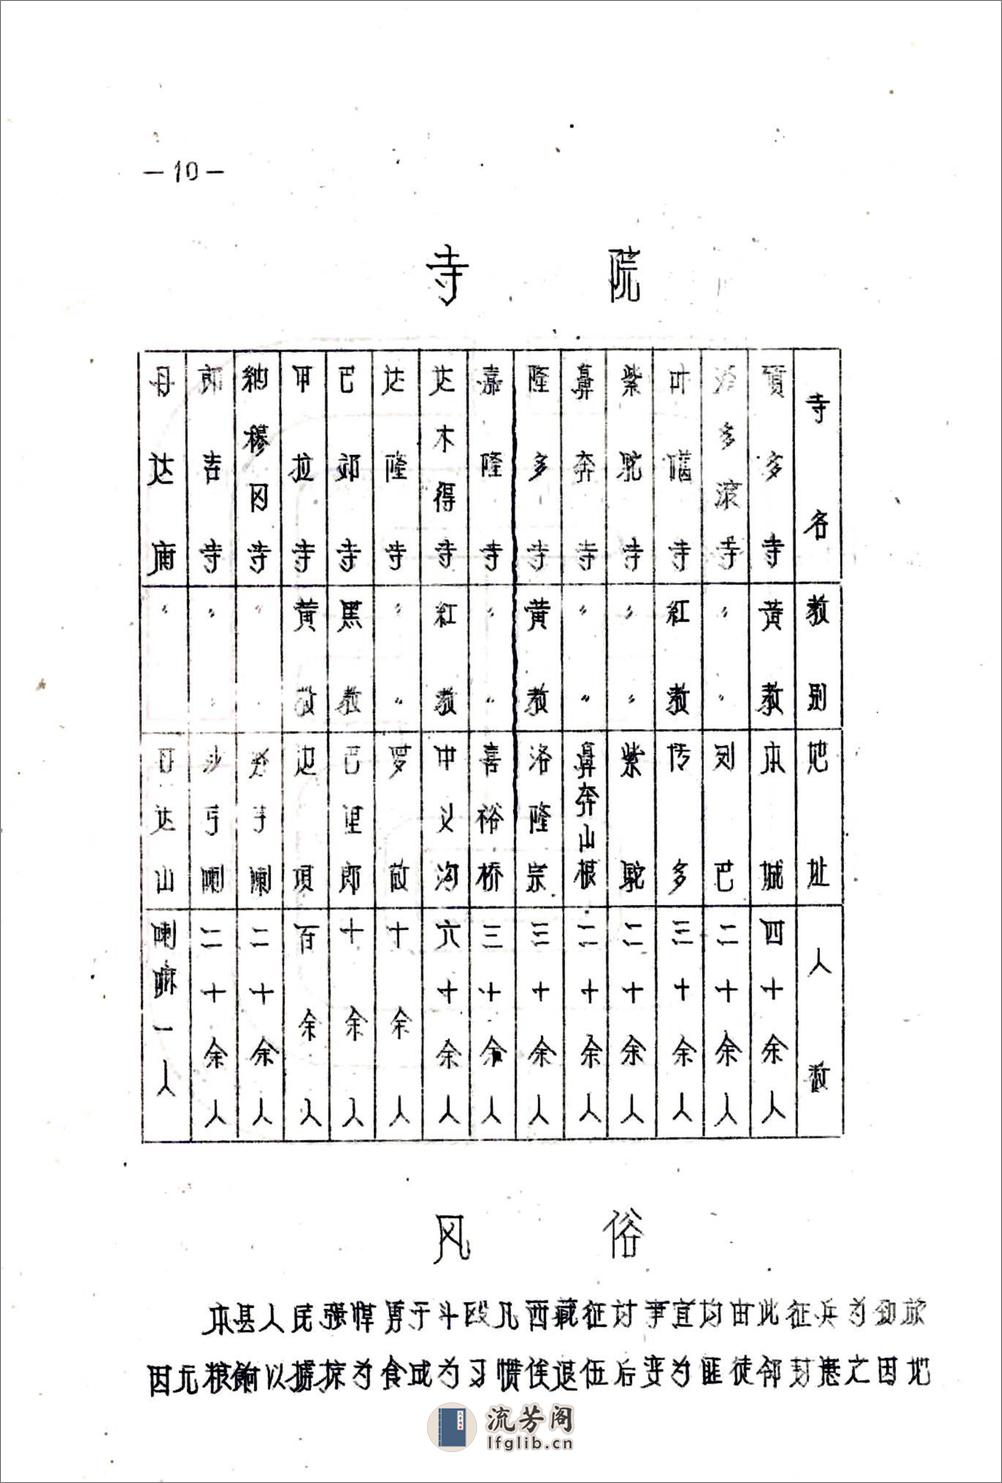 —10—
寺院
寺名 教别 地址 人数
贡多寺 黄教 本城 四十余人
多滚寺 〃 〃 列巴 二十余人
叶 寺 红教 传多 三十余人
紫驼寺 〃 〃 紫驼 二十余人
鼻奔寺 〃 〃 鼻奔山根 二十余人
隆多寺 黄教 洛隆宗 三十余人
嘉隆寺 〃 〃 喜裕桥 三十余人
达木得寺 红教 中义沟 六十余人
达隆寺 〃 〃 罗 十余人
巴郊寺 黑教 巴里郎 十余人
甲拉寺 黄教 边坝 百余人
纳穆冈寺 〃 〃 丁喇 二十余人
郎吉寺 〃 〃 沙丁喇 二十余人
丹达庙 〃 丹达山 喇嘛一人
风俗
本县人民强悍勇于斗殴凡西藏征讨事宜均由此征兵为劲旅
因无粮饷以掳掠为食成为习惯俟退伍后变为匪徒邻封患之因地
流芳阁
lfglib.cn